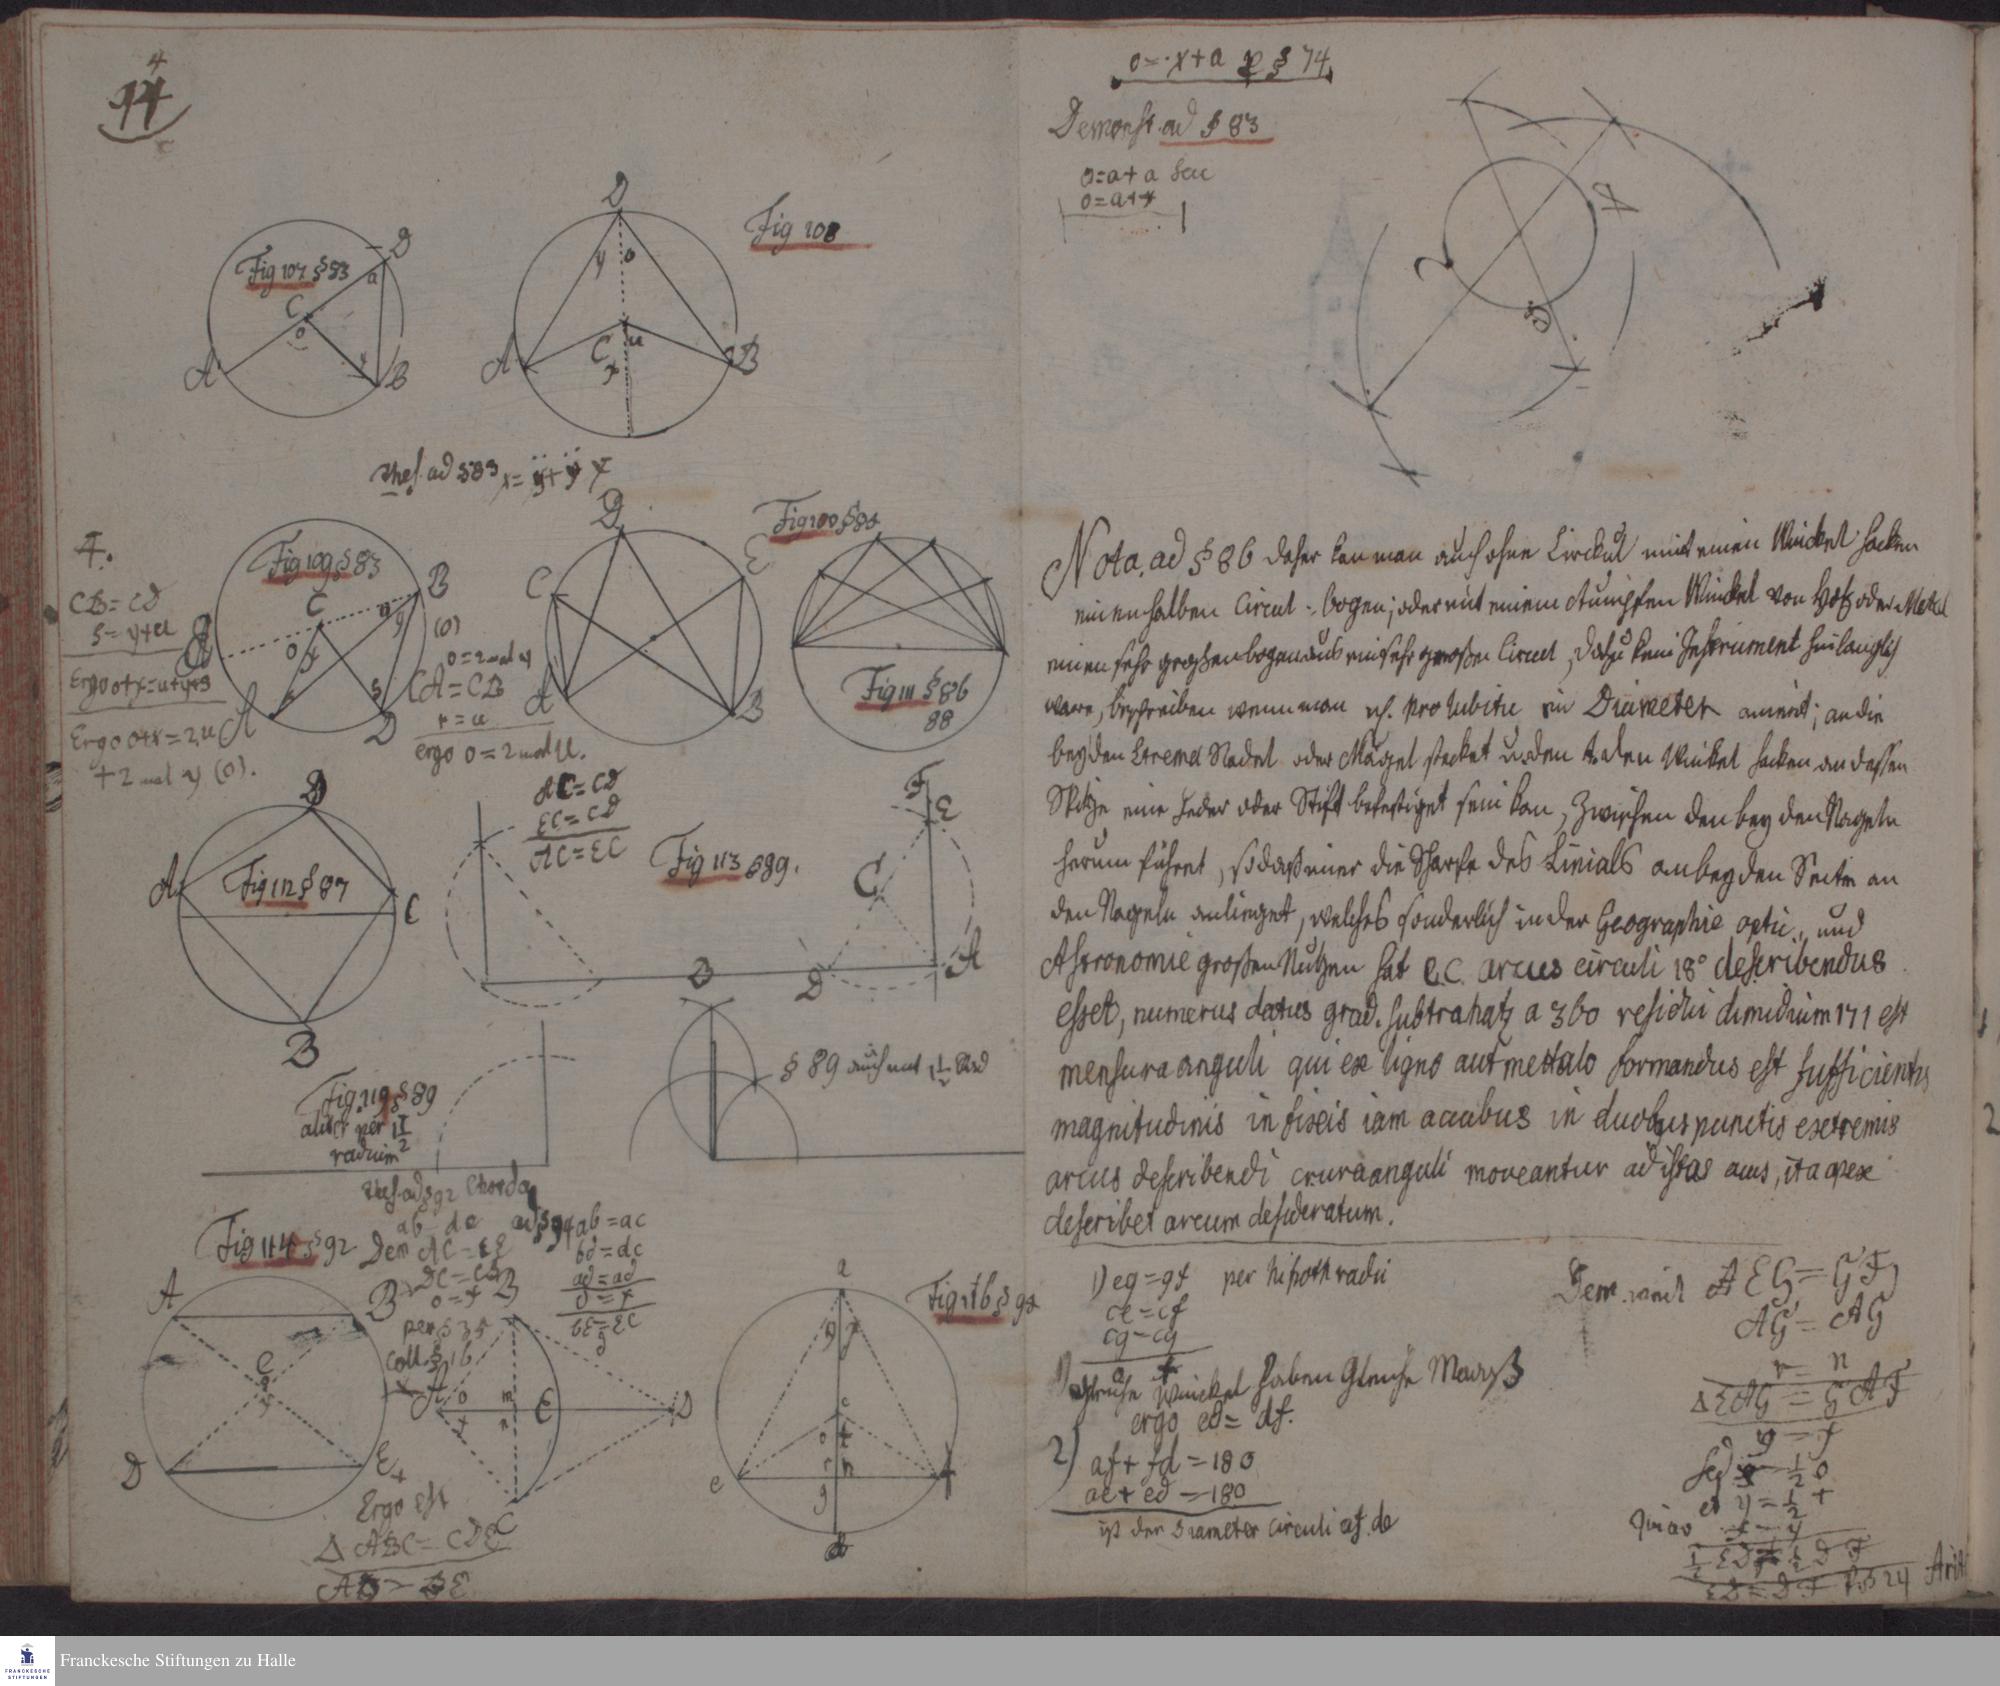 4
94
Fig 107 § 83
D
a
C
o
A
B
Fig 108
D
y o
C u
x
A
B
Thes. ad § 83 x = y + y
4.
CB = CD
s = y + u
Ergo o+x = u+y+s
Ergo o+x = 2,u
+ 2 mal y (o).
Fig 109 § 83
C
B
u
y
o x
A
D
(o)
o = 2 mal y
CA = CB
r = u
ergo o = 2 mal u.
D
E
C
A
B
Fig 111 § 86
88
D
A
Fig 112 § 87
C
B
AC = CD
EC = CD
AC = EC
Fig 113 § 89.
F
E
C
A
B
D
§ 89 auch mit 1 1/2 Rad
Fig. 119 § 89
aliter per 1 1/2
radium
Thes. ad § 92 Chorda
ab de
Fig 114 § 92
Dem AC = CE
DC = CB
o = x
per § 35
coll. § 16
ad § 94 ab = ac
bd = dc
ad = ad
o = x
bE = EC
A
B
C
D
E
Ergo est
Δ ABC = CDE
AB = DE
B
A
o
x
m
n
E
D
C
a
y x
c
o t
r n
g
e
f
Fig 116 § 92
o = x + a p § 74
Demonst. ad § 83
o = a + a seu
o = a + x
Nota. ad § 86 daher kan man auch ohne Circkul mit einen Winckel hacken
einen halben Circul-bogen; oder mit einem stumpfen Winckel von Holtz oder Metal
einen sehr großen bogen aus ein sehr großen Circul, dazu kein Instrument hinlänglich
wäre, beschreiben wenn man sch. pro lubitu ein Diameter annimt; an die
beyden Extrema Nadel oder Nägel stecket u. den den Winkel hacken an dessen
Spitze eine Feder oder Stift befestiget sein kan, Zwischen den beyden Nageln
herum führet, so daß immer die Scharfe des Linials an beyden Seiten an
den Nageln anlieget, welches sonderlich in der Geographie optic. und
Astronomie großen Nutzen hat e.c. arcus circuli 18° describendus
esset, numerus datus grad. subtrahatz a 360 residui dimidium 171 est
mensura anguli qui ex ligno aut mettalo formandus est sufficientis
magnitudinis in fixis iam acubus in duobus punctis extremis
arcus describendi crura anguli moveantur ad istas acus, ita apex
describet arcum desideratum.
1) eg = gf per hipoth radii
ce = cf
cg = cg
o x
gleiche Winckel haben Gleiche Maaß
ergo ed = df.
2) af + fd = 180
ae + ed = 180
ist der Diameter circuli af. de
Dem. weil A EG = GF
AG = AG
r = n
Δ EAG = GAF
y = x
sed = 1/2 o
et y = 1/2 t
x = y
1/2 ED = 1/2 DF
ED = DF p. § 24 Arith
Franckesche Stiftungen zu Halle
FRANCKESCHE
STIFTUNGEN